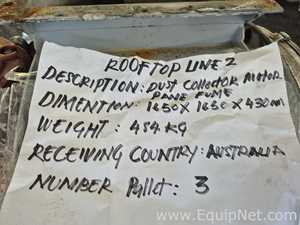 ROOFTOP LINE 2
DESCRIPTION: DUST COLLECTOR MOTOR
PONE FUME
DIMENTION: 1650 X 1630 X 430 mm
WEIGHT: 454 KG
RECEIVING COUNTRY: AUSTRALIA
NUMBER Pallet: 3
www.EquipNet.com